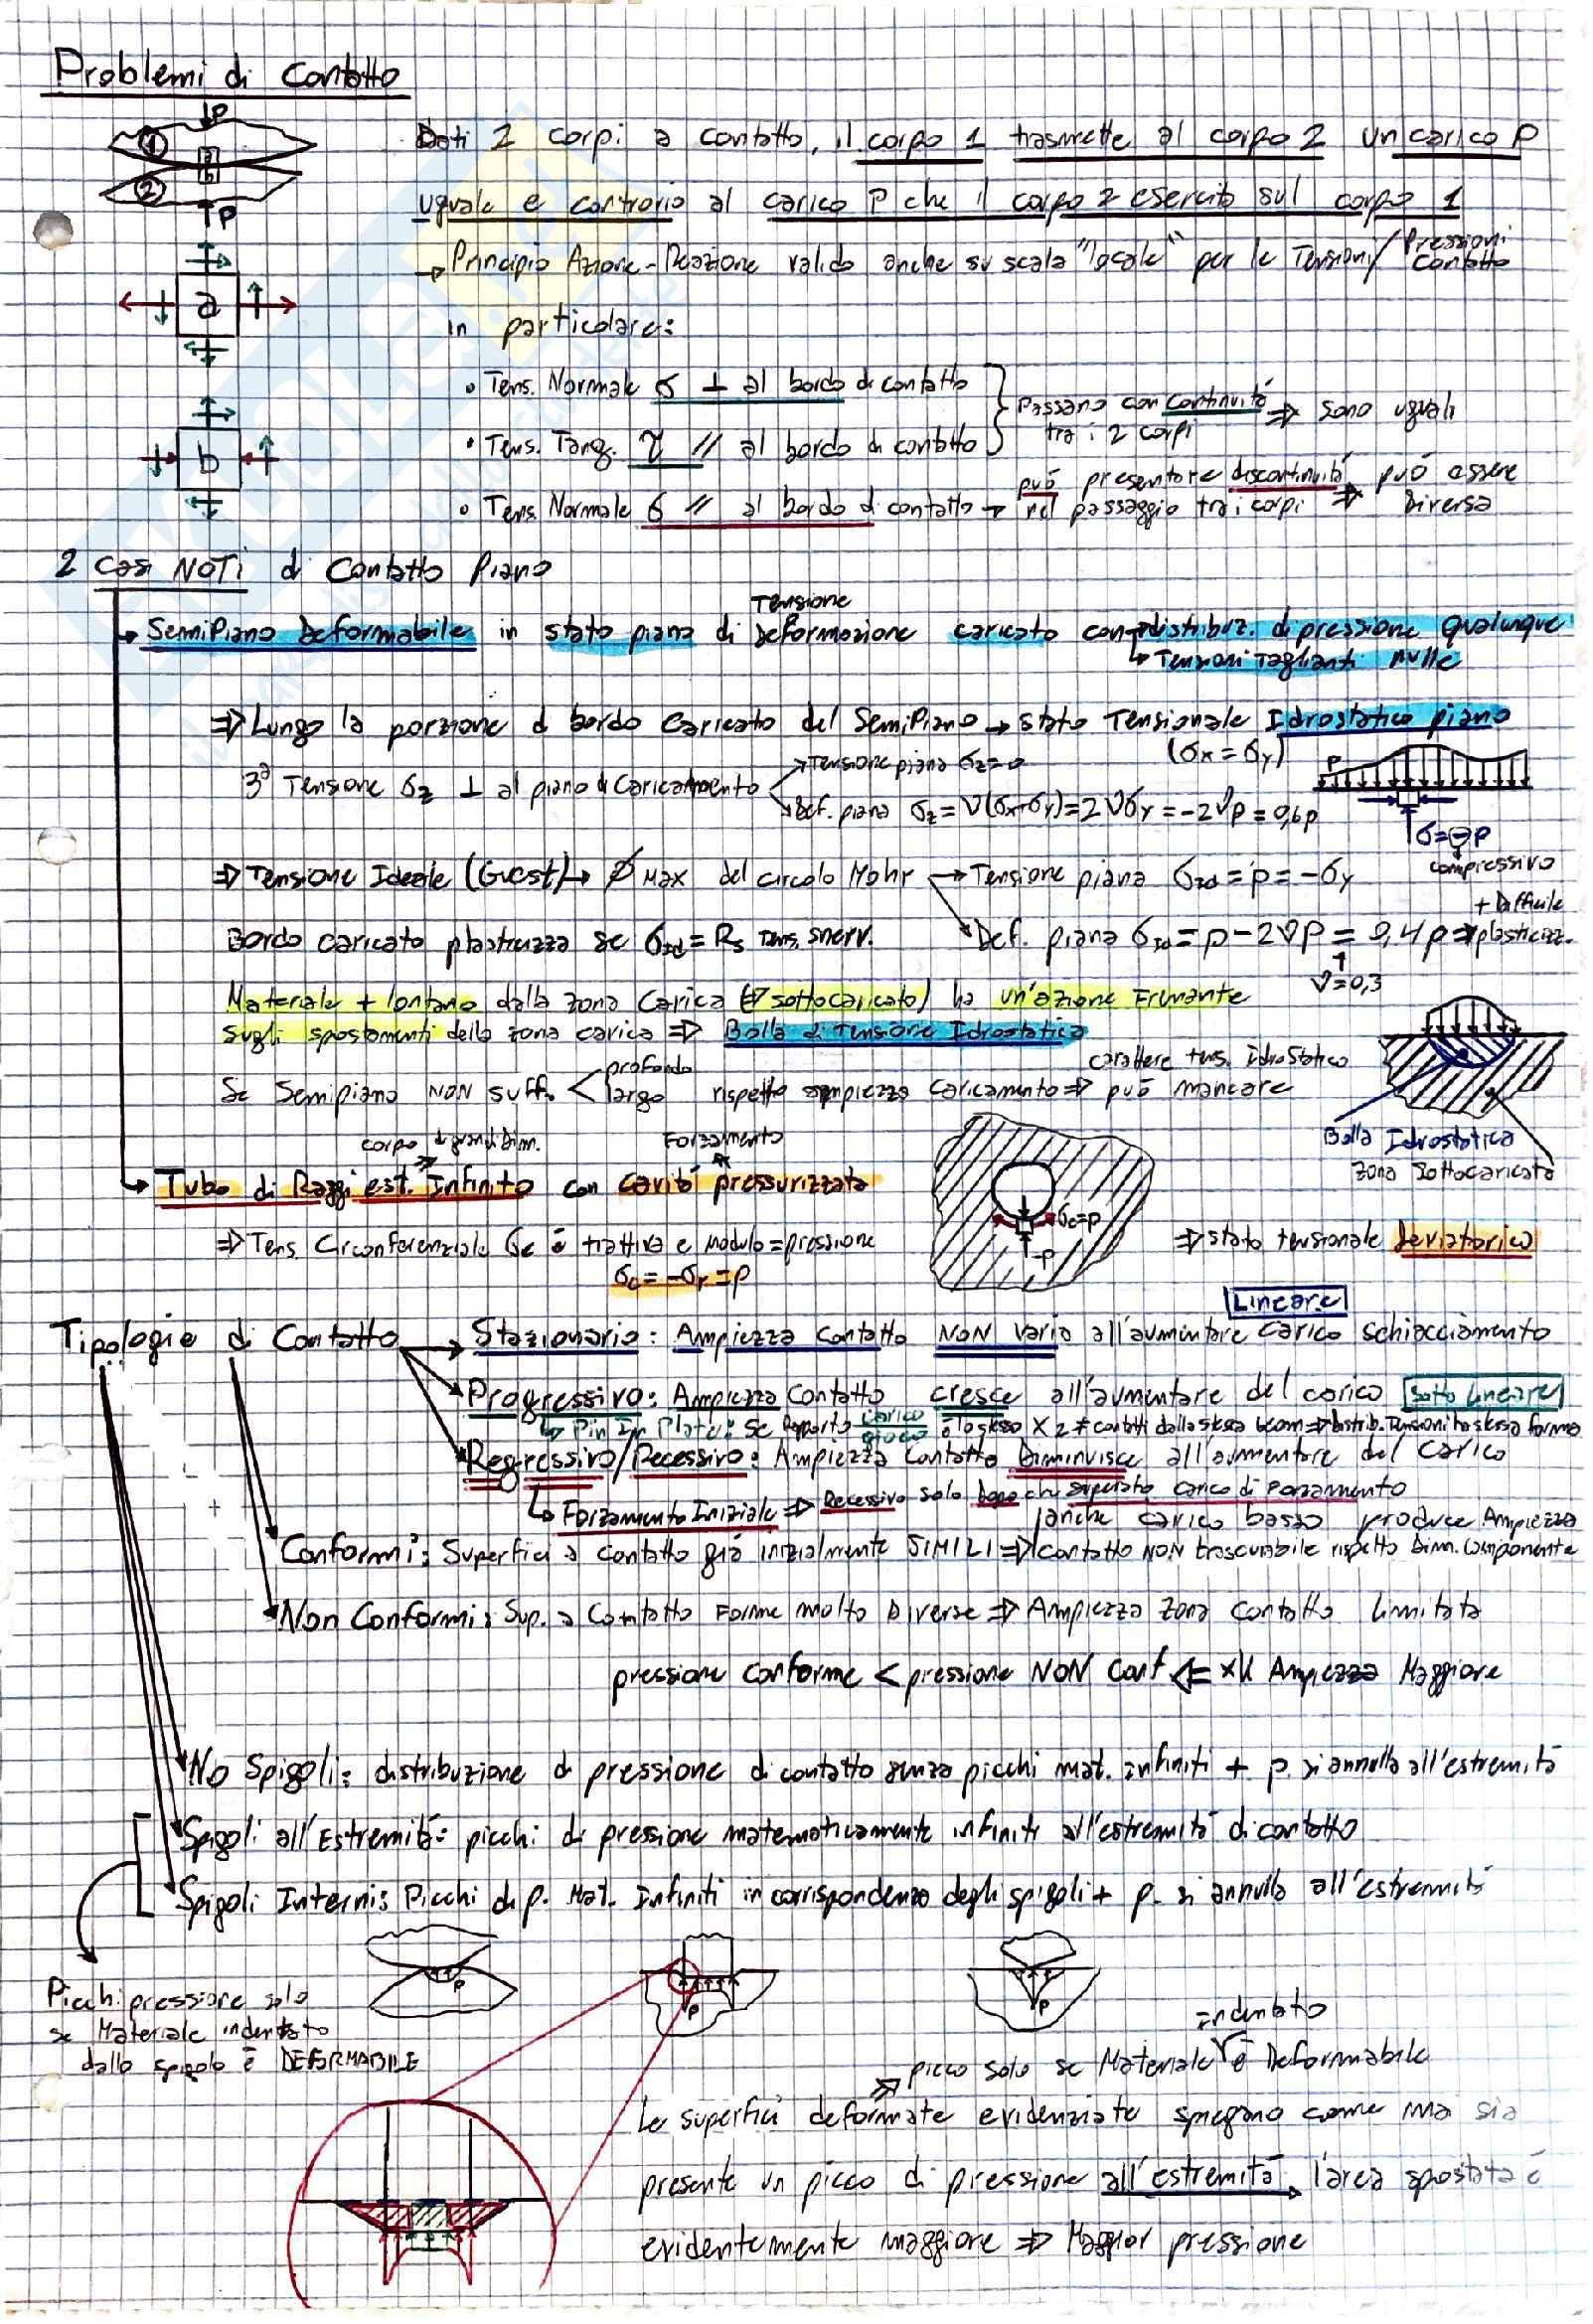 Problemi di Contatto
P
1
a
b
2
P
Dati 2 corpi a contatto, il corpo 1 trasmette al corpo 2 un carico P
uguale e contrario al carico P che il corpo 2 esercita sul corpo 1
→ Principio Azione-Reazione valido anche su scala "locale" per le Tensioni/Pressioni Contatto
in particolare:
a
• Tens. Normale σ ⊥ al bordo di contatto
• Tens. Tang. τ // al bordo di contatto
Passano con continuità tra i 2 corpi ⇒ sono uguali
b
• Tens. Normale σ // al bordo di contatto → può presentare discontinuità nel passaggio tra i corpi ⇒ può essere diversa
2 casi NOTI di Contatto Piano
Tensione
→ SemiPiano Deformabile in stato piano di Deformazione caricato con → distribuz. di pressione qualunque
↳ Tensioni Taglianti nulle
⇒ Lungo la porzione di bordo Caricato del SemiPiano → stato Tensionale Idrostatico piano
(σx = σy)
3ª Tensione σz ⊥ al piano di Caricamento
→ Tensione piana σz=0
→ Def. piana σz = ν(σx+σy) = 2νσy = -2νp = 0,6p
P
σ=-p
compressivo
⇒ Tensione Ideale (Guest) → Ø Max del circolo Mohr → Tensione piana σid = p = -σy
Bordo caricato plasticizza se σid = Rs Tens. snerv.
→ Def. piana σid = p-2νp = 0,4p ⇒ + Difficile plasticizz.
ν=0,3
Materiale + lontano dalla zona Carica (⇒ sottocaricato) ha un'azione Frenante
sugli spostamenti della zona carica ⇒ Bolla di tensione Idrostatica
Se Semipiano NON suff. < profondo largo rispetto ampiezza caricamento ⇒ carattere tens. Idrostatico può mancare
Bolla Idrostatica
zona Sottocaricata
corpo di grandi Dim.
Forzamento
→ Tubo di Raggi est. Infinito con cavità pressurizzata
⇒ Tens. Circonferenziale σc è trattiva e modulo = pressione
σc = -σr = p
σc=p
-p
⇒ stato tensionale Deviatorico
Lineare
Tipologie di Contatto → Stazionario: Ampiezza Contatto NON varia all'aumentare carico schiacciamento
Progressivo: Ampiezza Contatto cresce all'aumentare del carico sotto lineare
↳ Pin In Plate: se Rapporto carico/gioco è lo stesso x 2 ≠ contatti dalla stessa geom ⇒ distrib. Tensioni ha stessa forma
Regressivo/Recessivo: Ampiezza Contatto Diminuisce all'aumentare del Carico
↳ Forzamento Iniziale ⇒ Recessivo solo Dopo che superato carico di Forzamento
Conformi: Superfici a contatto già inizialmente SIMILI ⇒ anche carico basso produce Ampiezza contatto NON trascurabile rispetto Dim. Componente
Non Conformi: Sup. a Contatto Forme molto Diverse ⇒ Ampiezza zona Contatto limitata
pressione conforme < pressione NON Conf ⇐ xk Ampiezza Maggiore
No Spigoli: distribuzione di pressione di contatto senza picchi mat. infiniti + p. si annulla all'estremità
Spigoli all'Estremità: picchi di pressione matematicamente infiniti all'estremità di contatto
Spigoli Interni: Picchi di p. Mat. Infiniti in corrispondenza degli spigoli + p. si annulla all'estremità
P
P
P
Picchi pressione solo
se Materiale indentato
dallo spigolo è DEFORMABILE
indentato
picco solo se Materiale è Deformabile
Le superfici deformate evidenziate spiegano come ma sia
presente un picco di pressione all'estremità, l'area spostata è
evidentemente maggiore ⇒ Maggior pressione